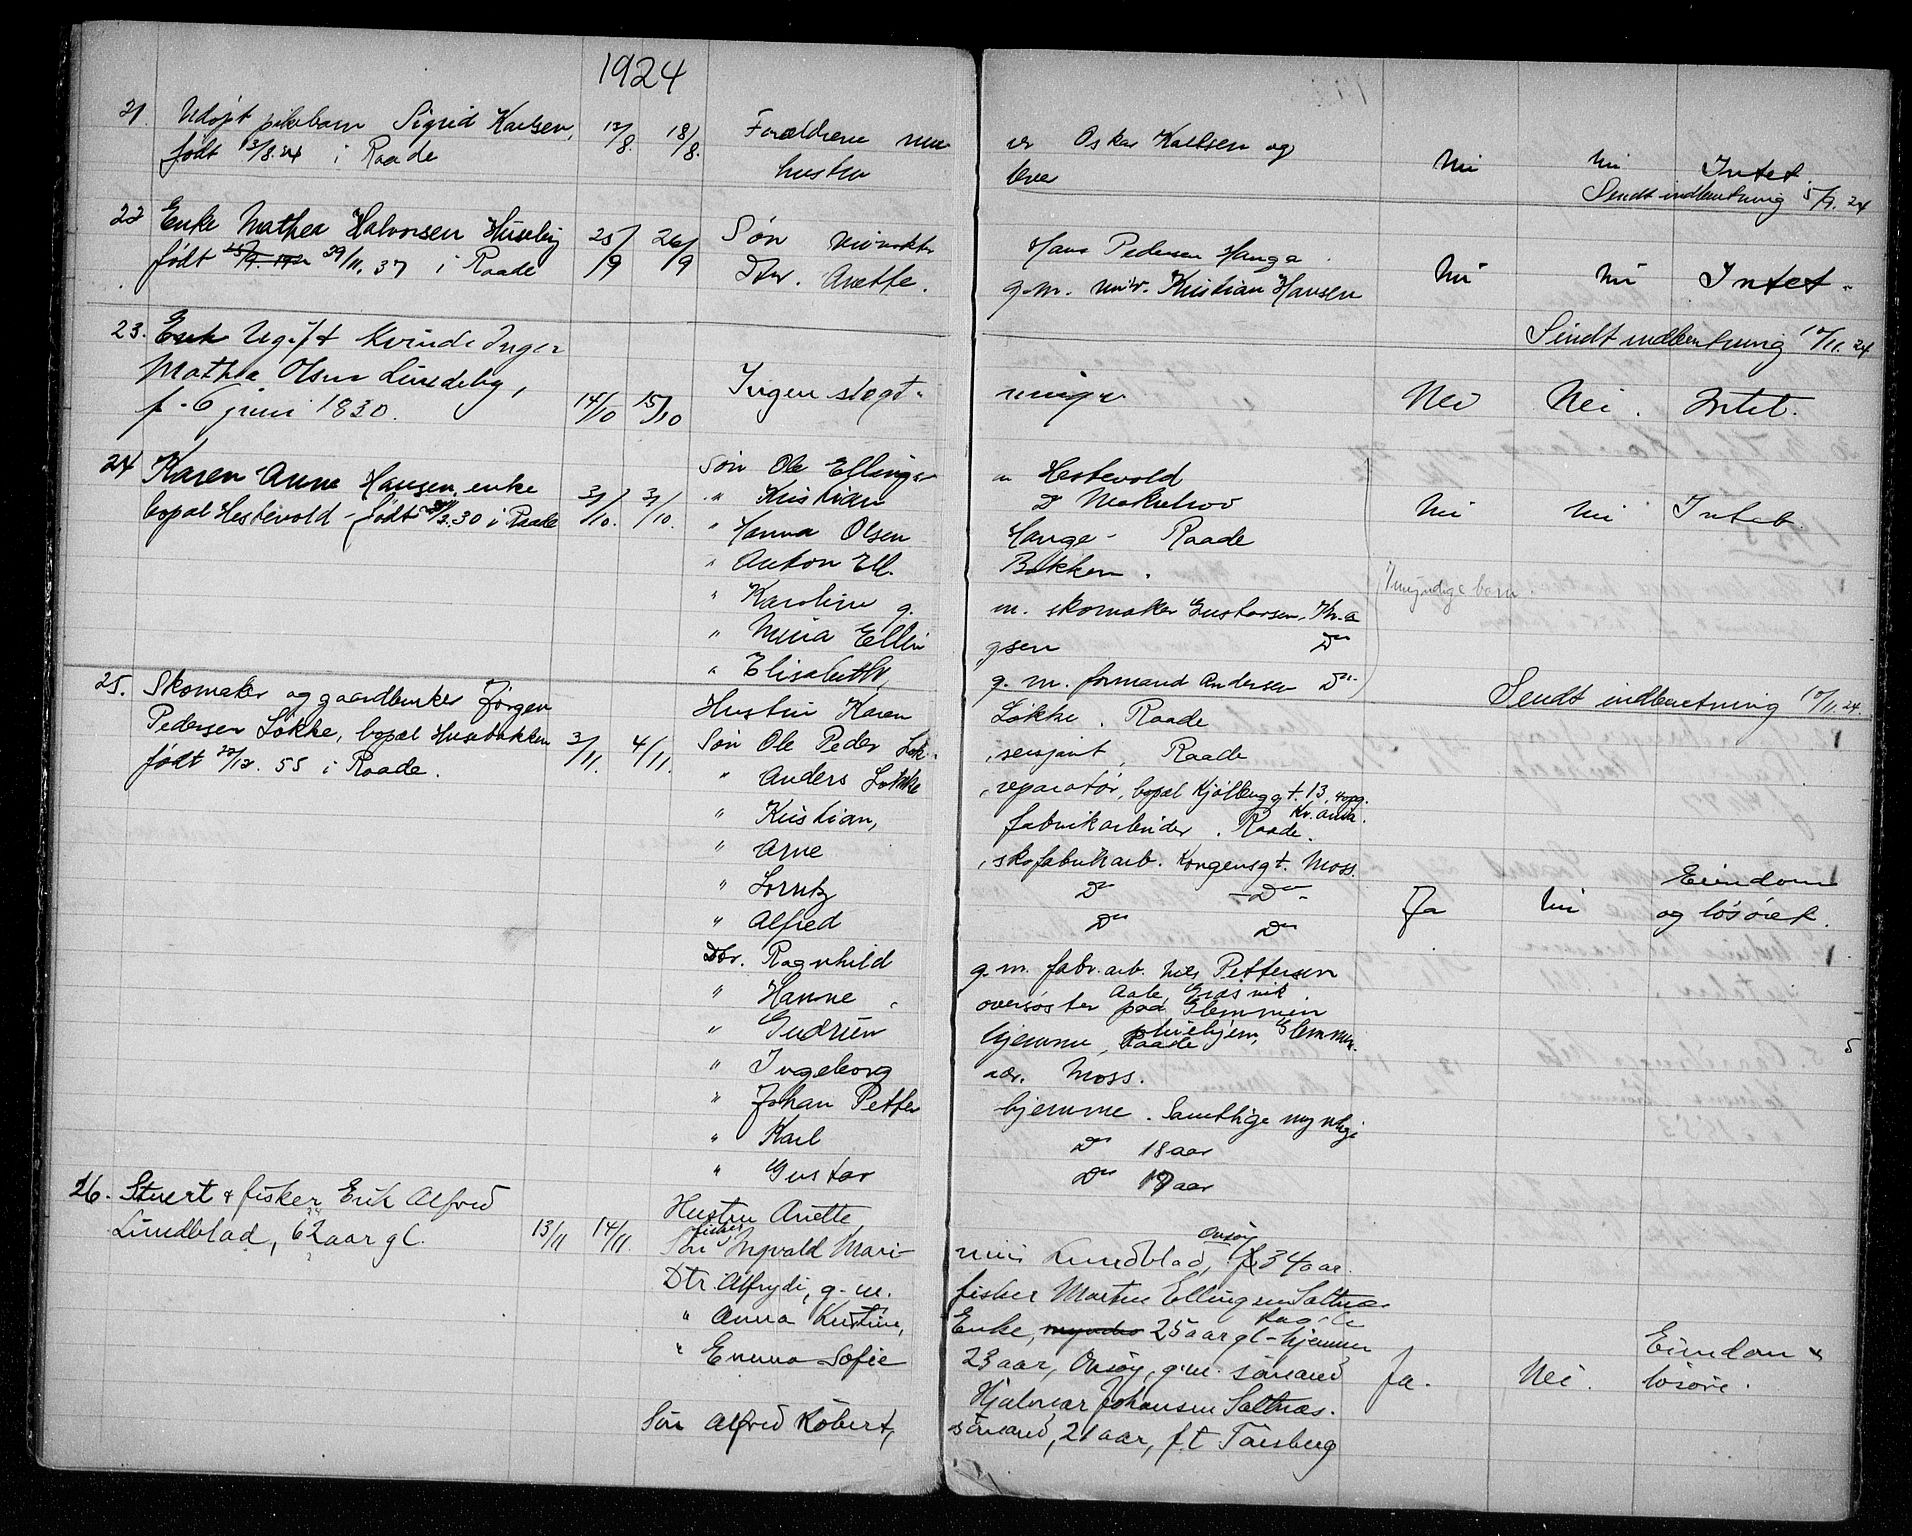 1924
21. Udøpt pikebarn Sigrid Karlsen, 12/8. 18/8. Forældrene mu er Oskar Karlsen og
født 12/8.24 i Raade hustru Nei Nei Intet.
Sendt indberetning 5/9. 24
22 Enke Mathea Halvorsen Huseby 25/9 26/9 Søn Hans Pedersen Hauga
født 29/11.37 i Raade Dtr. Anette. g.m. Kristian Hansen Nei Nei Intet.
Sendt indberetning 10/11. 24
23. Enk Ugift kvinde Inger
Mathea Olsen Lundeby,
f. 6 juni 1830. 14/10 15/10 Ingen slegtninger Nei Nei. Intet.
24 Karen Anne Hansen, enke 3/10. 3/10. Søn Ole Ellingsen Hestevold
bopæl Hestevold - født 3.30 i Raade " Kristian Do Nei Nei Intet.
" Hanna Olsen Hauge - Raade
" Anton Ell. Bakken.
" Karoline g. m. skomaker Gustavsen, Kr.a Umyndige barn.
" Mina Ellingsen Do
" Elisabeth, g. m. formand Andersen Do
Sendt indberetning 10/11. 24.
25. Skomaker og gaardbruker Jørgen Hustru Karen Løkke. Raade
Pedersen Løkke, bopæl Husebakken 3/11. 4/11. Søn Ole Peder Løk. , sersjant, Raade
født 20/12. 55 i Raade. " Anders Løkke , reparatør, bopæl 13, Kr.ania.
" Kristian, fabrikarbeider. Raade.
" Arne , skofabrikarb. Kongensgt. Moss.
" Lorntz Do Do
" Alfred Do Do Ja Nei Eiendom og løsøret.
Dtr. Ragnhild g.m. fabr.arb. Nils Pettersen
" Hanne. oversøster paa Glemmen pleiehjem, Glemmen.
" Gudrun hjemme, Raade
" Ingeborg adr. Moss.
" Johan Petter hjemme. Samtlige myndige
" Karl Do 18 aar
" Gustav Do 17 aar
26. Stuert & fisker Erik Alfred Hustru Anette,
Lundblad, 62 aar gl. 13/11 14/11. fisker Søn Ingvald Marinius Lundblad, Onsøy 34 aar.
Dtr. Alfryde, g. m. fisker Martin Ellingsen Saltnæs
" Anna Kristine, Enke, myndig 25 aar gl - hjemme
" Emma Sofie 23 aar, Onsøy, g.m. sømand Ja. Nei. Eiendom & løsøre.
Hjalmar Johansen Saltnæs.
Søn Alfred Robert, sømand, 21 aar, f.t Tønsberg